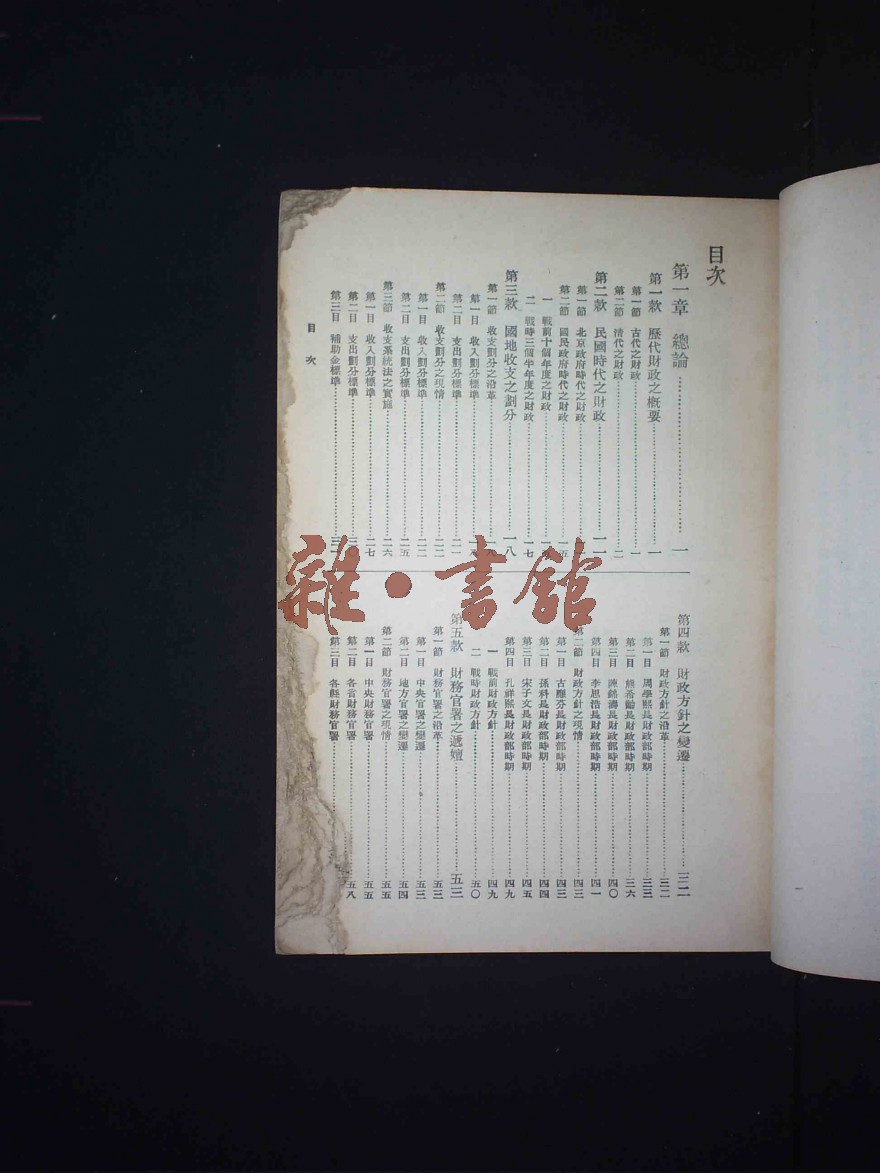 目次
第一章 總論……一
第一款 歷代財政之概要……一
第一節 古代之財政……一
第二節 清代之財政……二
第二款 民國時代之財政……一一
第一節 北京政府時代之財政……一一
第二節 國民政府時代之財政……一五
一 戰前十個年度之財政
二 戰時三個半年度之財政……一七
第三款 國地收支之劃分……一八
第一節 收支劃分之沿革
第一目 收入劃分標準
第二目 支出劃分標準……二一
第二節 收支劃分之現情……二二
第一目 收入劃分標準……二二
第二目 支出劃分標準……二五
第三節 收支系統法之實施……二六
第一目 收入劃分標準……二七
第二目 支出劃分標準……三〇
第三目 補助金標準
第四款 財政方針之變遷……三二
第一節 財政方針之沿革……三二
第一目 周學熙長財政部時期……三三
第二目 熊希齡長財政部時期……三六
第三目 陳錦濤長財政部時期……四〇
第四目 李思浩長財政部時期……四一
第二節 財政方針之現情……四三
第一目 古應芬長財政部時期……四三
第二目 孫科長財政部時期……四四
第三目 宋子文長財政部時期……四五
第四目 孔祥熙長財政部時期……四九
一 戰前財政方針……四九
二 戰時財政方針……五〇
第五款 財務官署之遞嬗……五三
第一節 財務官署之沿革……五三
第一目 中央官署之變遷……五三
第二目 地方官署之變遷……五四
第二節 財務官署之現情……五五
第一目 中央財務官署……五五
第二目 各省財務官署……五八
第三目 各縣財務官署
目次
雜·書館